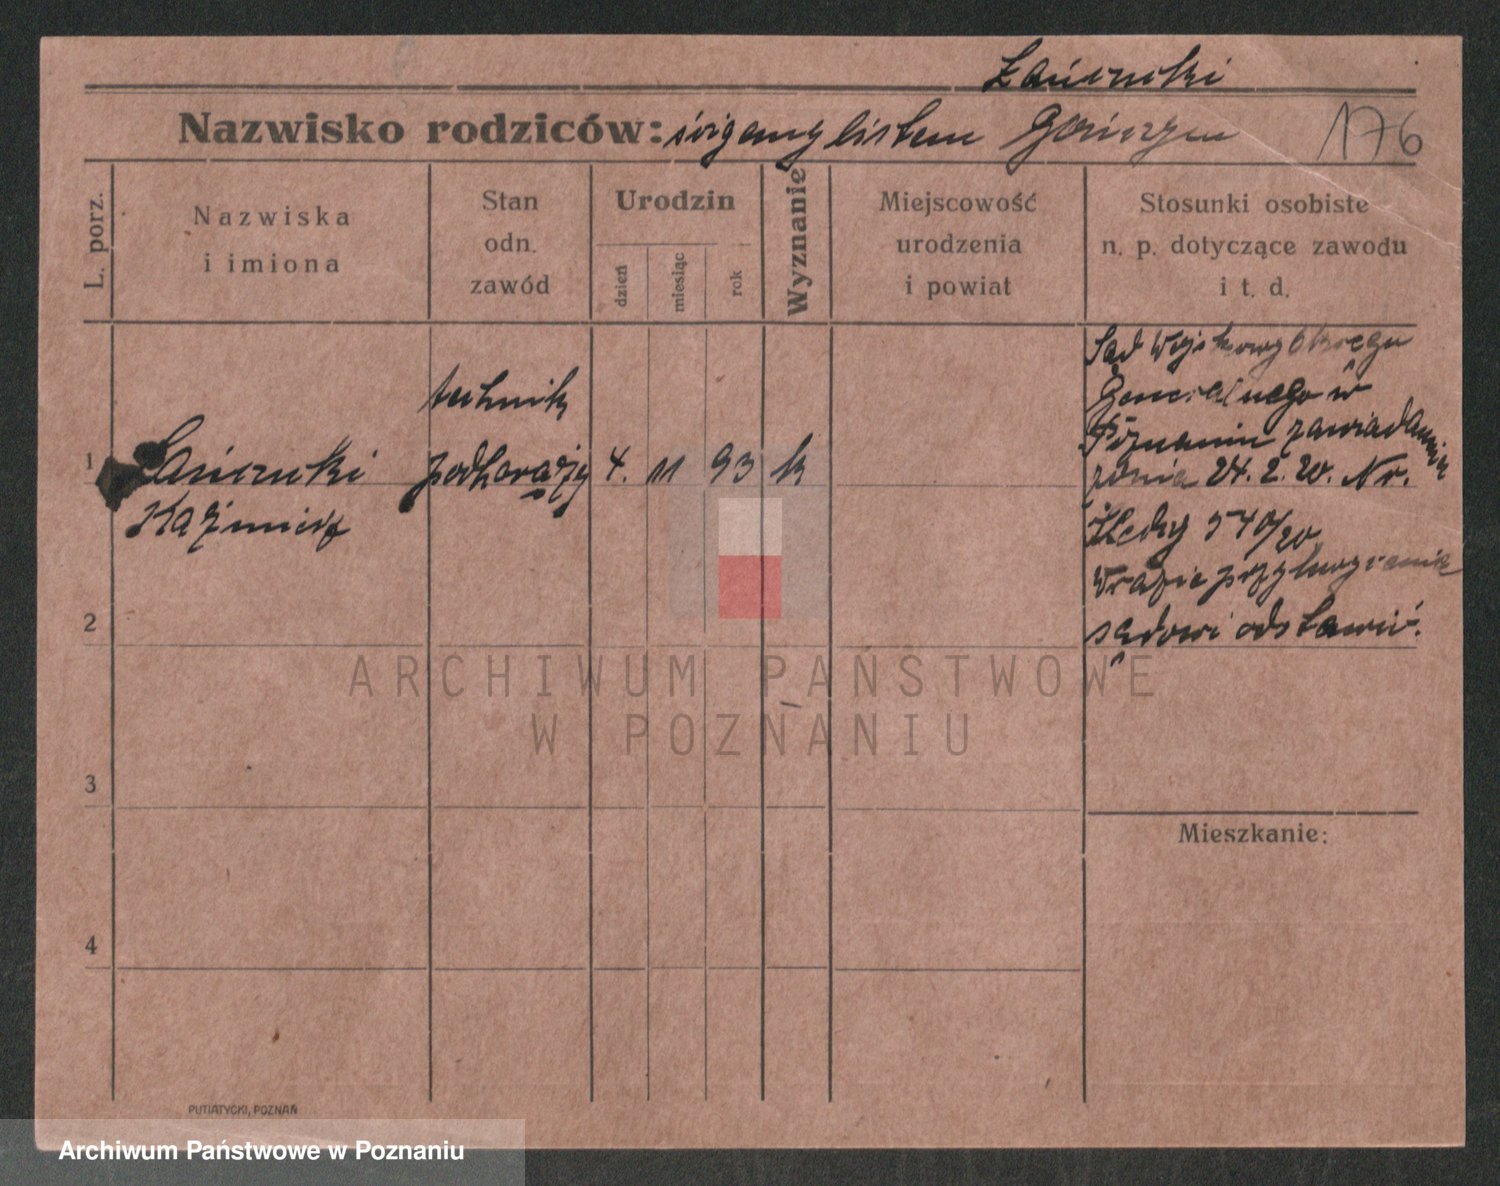 Łańcucki
Nazwisko rodziców: ścigany listem Gończym 176
L. porz.
Nazwiska
i imiona
Stan
odn.
zawód
Urodzin
dzień
miesiąc
rok
Wyznanie
Miejscowość
urodzenia
i powiat
Stosunki osobiste
n. p. dotyczące zawodu
i t. d.
1
Łańcucki
Kaźmierz
technik
podchorąży
4. 11 93 k
Sąd Wojskowy Okręgu
Generalnego w
Poznaniu zawiadamia
24. 2. 20. Nr.
540/20
W razie przytrzymania
sądowi odstawić.
2
3
4
Mieszkanie:
PUTIATYCKI, POZNAŃ
ARCHIWUM PAŃSTWOWE
W POZNANIU
Archiwum Państwowe w Poznaniu